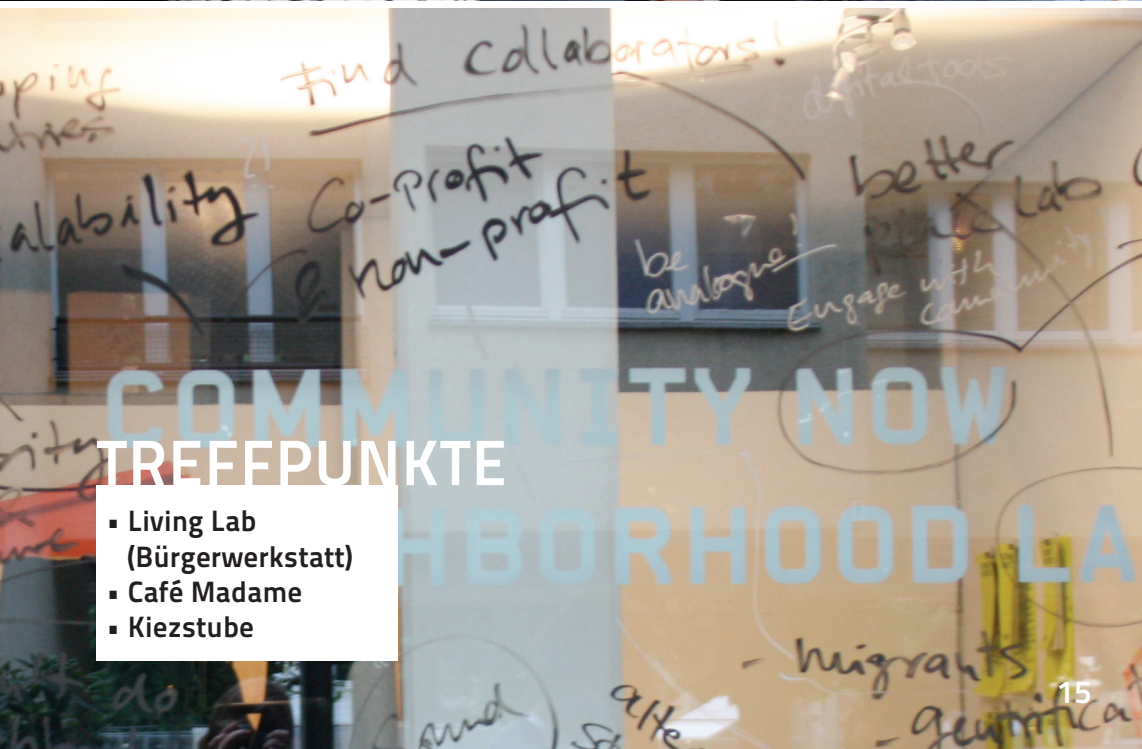 Find Collaborators!
digital tools
Co-Profit
& non-profit
better
Lab
be
analogue!
Engage with
community
COMMUNITY NOW
TREFFPUNKTE
▪ Living Lab
(Bürgerwerkstatt)
▪ Café Madame
▪ Kiezstube
HBORHOOD LA
- migrants
15
- gentrifica
do